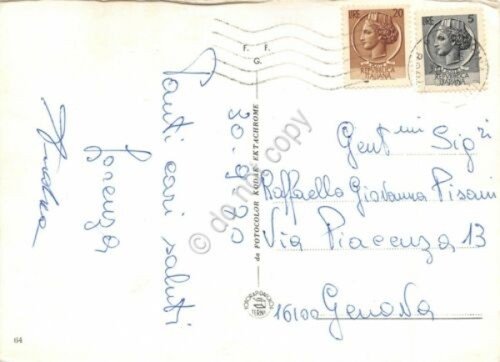 Tanti cari saluti
Lorenza
30.9.70
F. F.
G.
da FOTOCOLOR KODAK EKTACHROME
TERNI
64
LIRE 20
REPUBBLICA
ITALIANA
LIRE 5
REPUBBLICA
ITALIANA
Gent.mi Sig.ri
Raffaello Giovanna Pisani
Via Piacenza 13
16100 Genova
do not copy